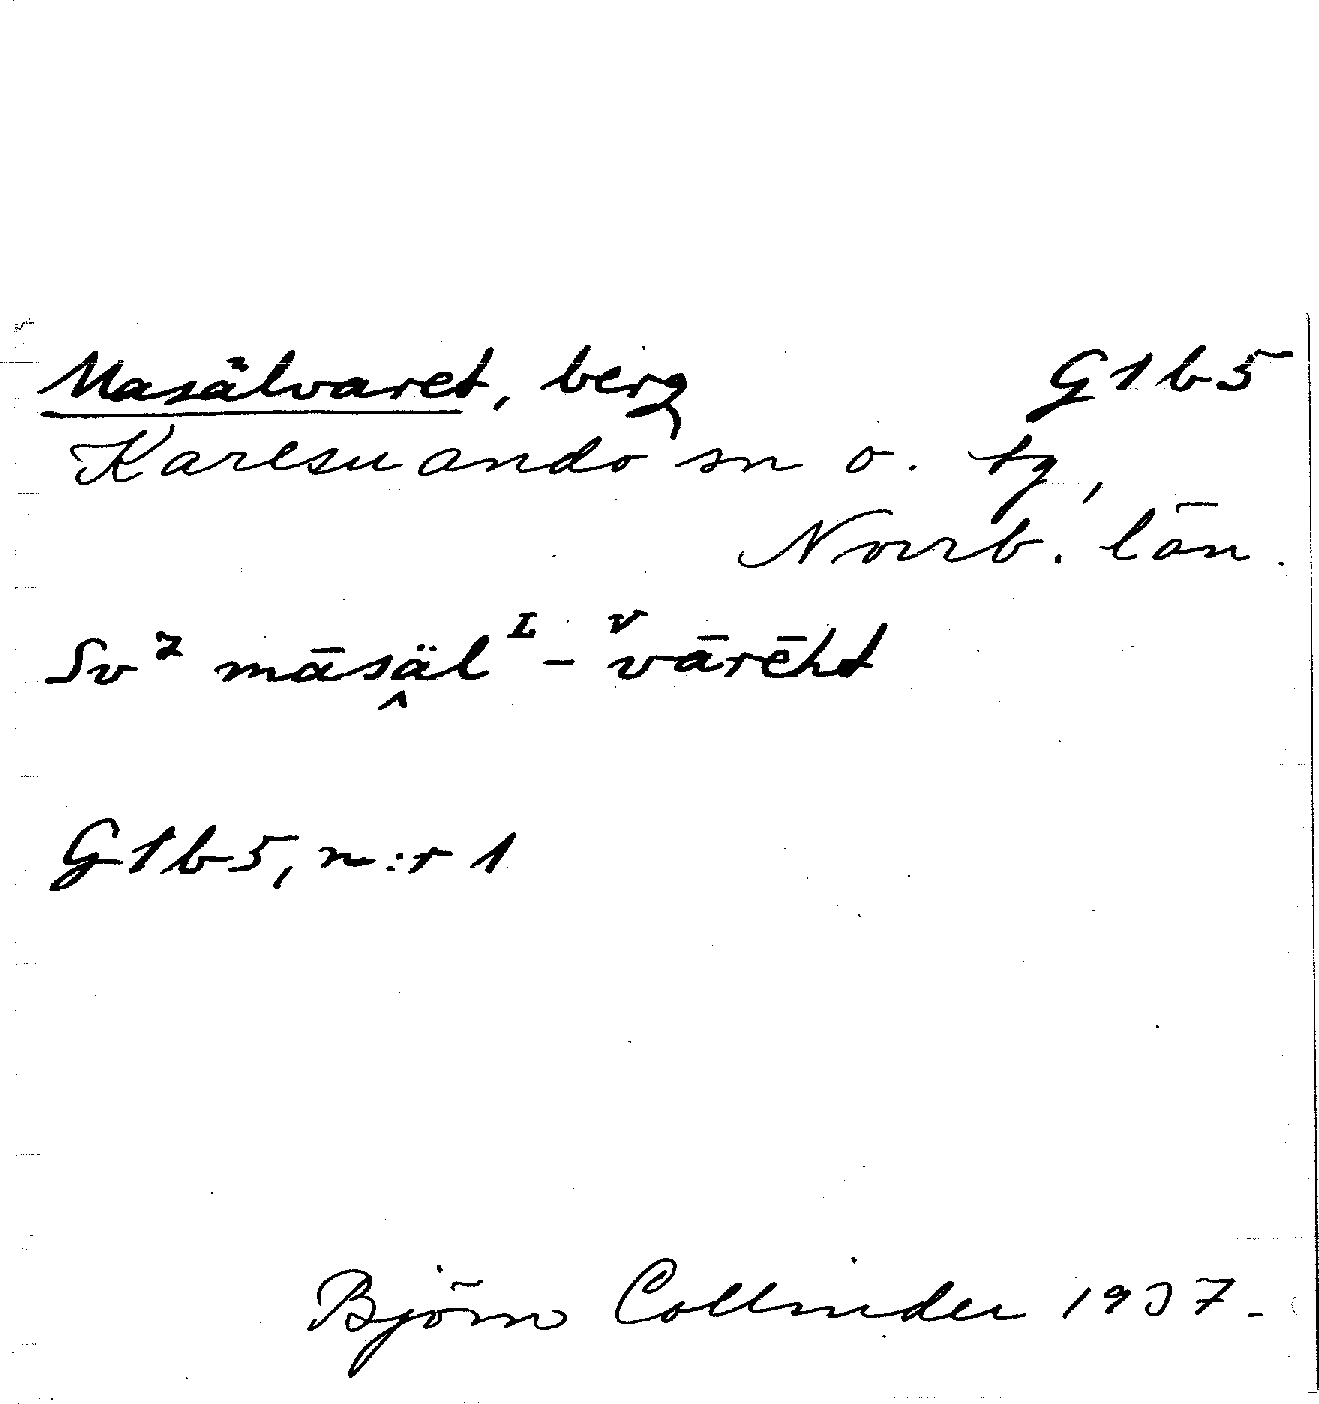 Masälvaret, berg G1b5
Karesuando sn o. tg,
Norrb. län.
Sv² māsäl^I - vārēht
G1b5, n:r 1
Björn Collinder 1937.